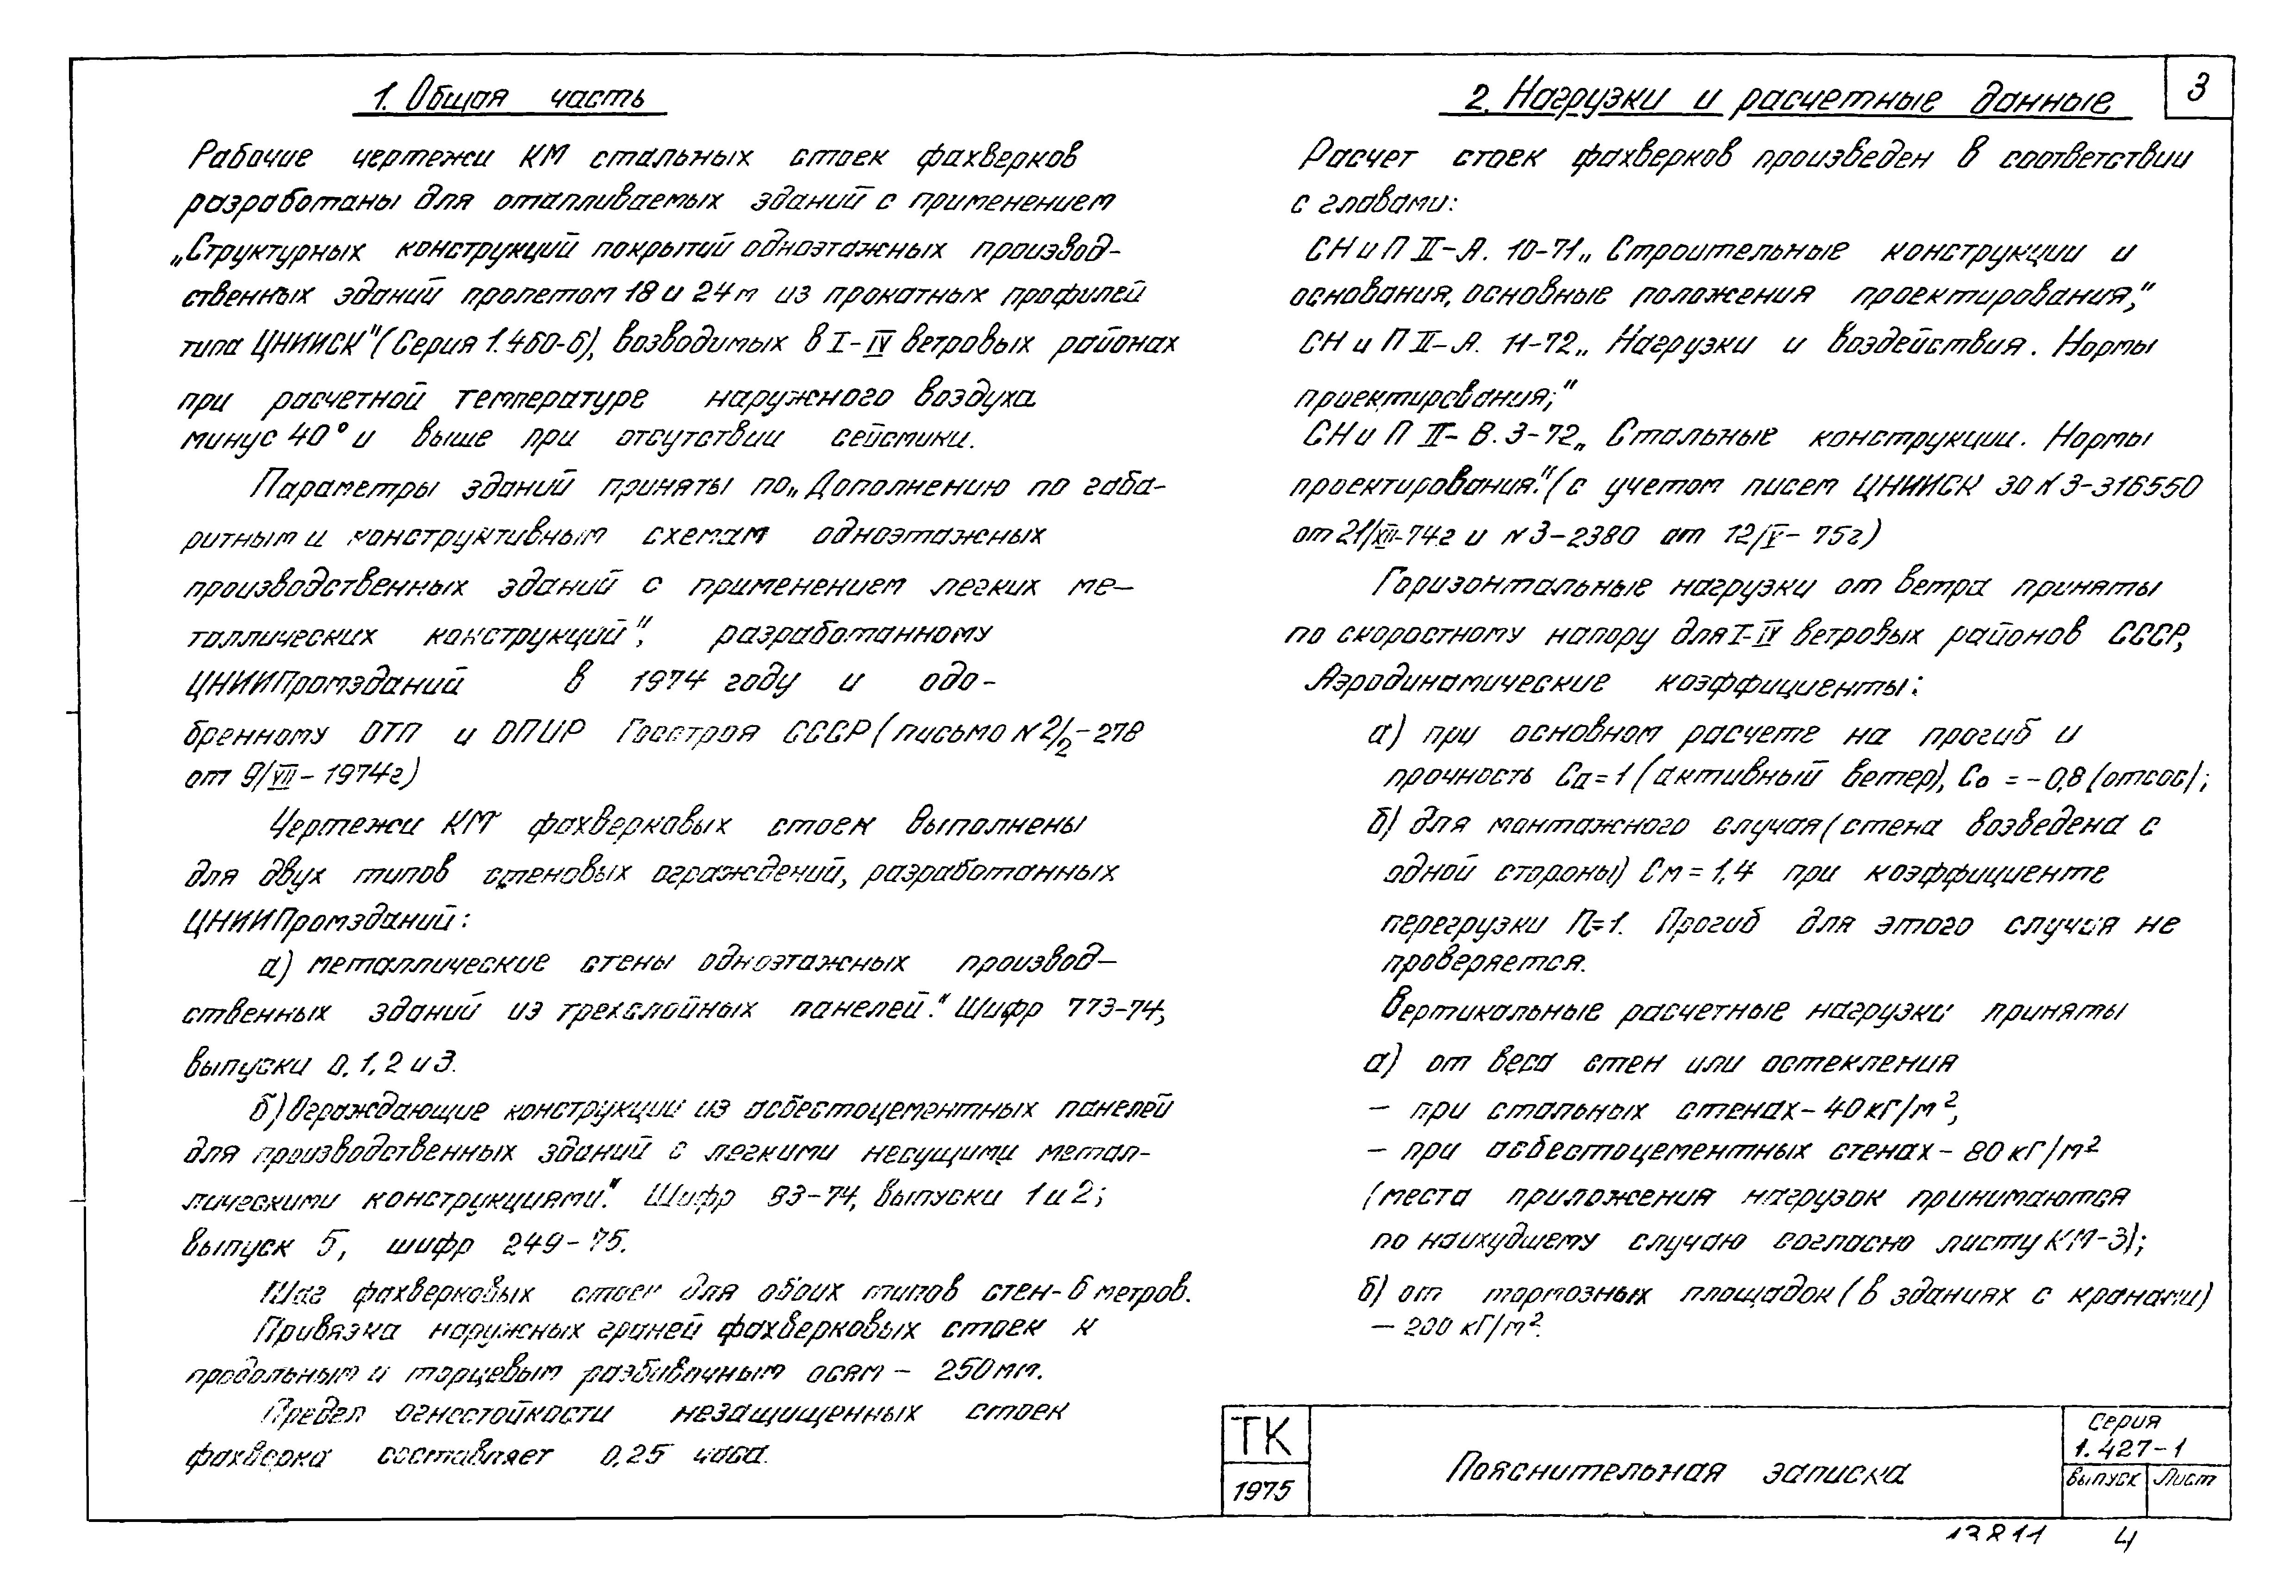 3
1. Общая часть
Рабочие чертежи КМ стальных стоек фахверков
разработаны для отапливаемых зданий с применением
„Структурных конструкций покрытий одноэтажных производ-
ственных зданий пролетом 18 и 24 м из прокатных профилей
типа ЦНИИСК" (Серия 1.460-6), возводимых в I-IV ветровых районах
при расчетной температуре наружного воздуха
минус 40° и выше при отсутствии сейсмики.
Параметры зданий приняты по „Дополнению по габа-
ритным и конструктивным схемам одноэтажных
производственных зданий с применением легких ме-
таллических конструкций", разработанному
ЦНИИПромзданий в 1974 году и одо-
бренному ОТП и ОПИР Госстроя СССР (письмо N 2/2-278
от 9/VII-1974г)
Чертежи КМ фахверковых стоек выполнены
для двух типов стеновых ограждений, разработанных
ЦНИИПромзданий:
а) металлические стены одноэтажных производ-
ственных зданий из трехслойных панелей." Шифр 773-74,
выпуски 0, 1, 2 и 3.
б) Ограждающие конструкции из асбестоцементных панелей
для производственных зданий с легкими несущими метал-
лическими конструкциями." Шифр 93-74, выпуски 1 и 2;
выпуск 5, шифр 249-75.
Шаг фахверковых стоек для обоих типов стен - 6 метров.
Привязка наружных граней фахверковых стоек к
продольным и торцевым разбивочным осям - 250 мм.
Предел огнестойкости незащищенных стоек
фахверка составляет 0,25 часа.
2. Нагрузки и расчетные данные
Расчет стоек фахверков произведен в соответствии
с главами:
СНиП II-А. 10-71 „Строительные конструкции и
основания, основные положения проектирования,"
СНиП II-А. 11-72 „Нагрузки и воздействия. Нормы
проектирования;"
СНиП II-В. 3-72 „Стальные конструкции. Нормы
проектирования." (с учетом писем ЦНИИСК за N 3-316550
от 21/XII-74г и N 3-2380 от 12/V-75г)
Горизонтальные нагрузки от ветра приняты
по скоростному напору для I-IV ветровых районов СССР,
Аэродинамические коэффициенты:
а) при основном расчете на прогиб и
прочность Са=1 (активный ветер), Со = -0,8 (отсос);
б) для монтажного случая (стена возведена с
одной стороны) См = 1,4 при коэффициенте
перегрузки П=1. Прогиб для этого случая не
проверяется.
Вертикальные расчетные нагрузки приняты
а) от веса стен или остекления
- при стальных стенах - 40 кГ/м²,
- при асбестоцементных стенах - 80 кГ/м²
(места приложения нагрузок принимаются
по наихудшему случаю согласно листу КМ-3);
б) от тормозных площадок (в зданиях с кранами)
- 200 кГ/м².
ТК
1975
Пояснительная записка
Серия
1.427-1
Выпуск Лист
13811 4